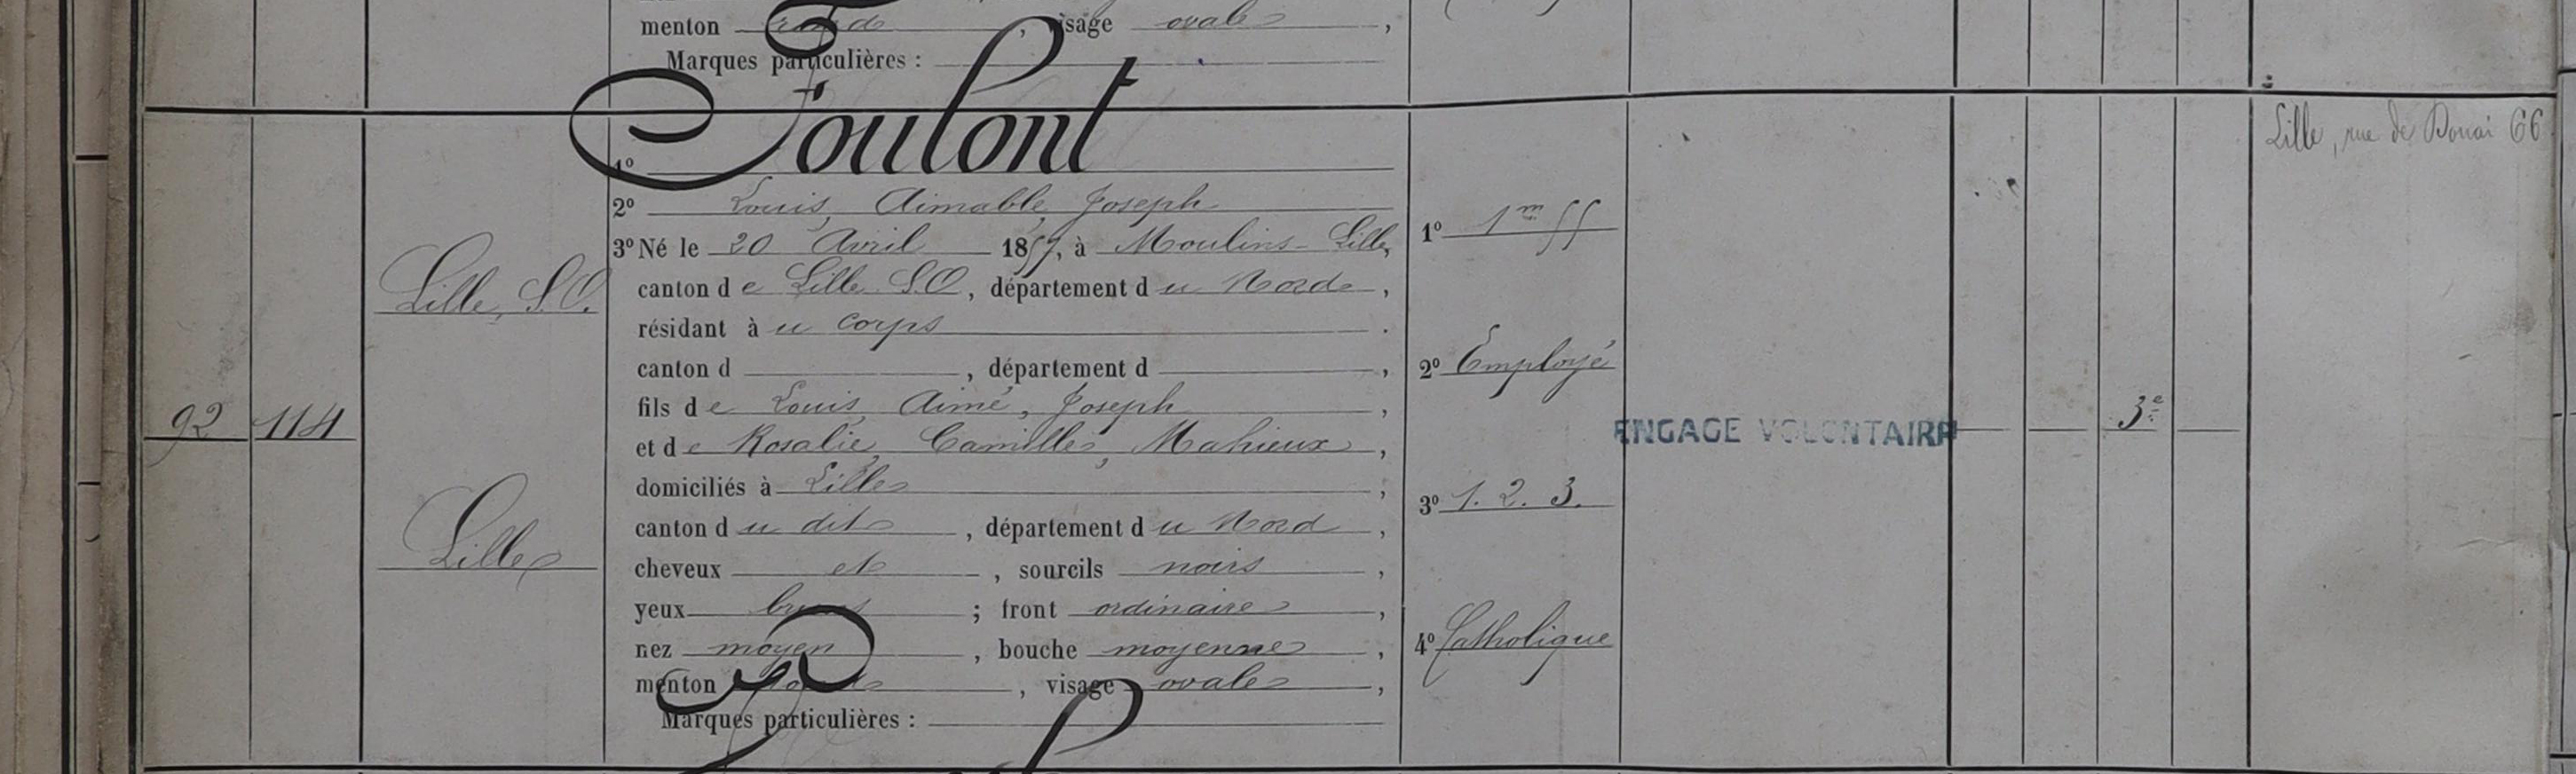 menton rond, visage ovale,
Marques particulières :
1° Toulont
2° Louis, Aimable, Joseph
3° Né le 20 Avril 1857, à Moulins-Lille,
canton de Lille S.O, département du Nord,
résidant au corps.
canton d , département d ,
fils de Louis, Aimé, Joseph,
et de Rosalie, Camille, Mahieux,
domiciliés à Lille,
canton du dit, département du Nord,
cheveux et, sourcils noirs,
yeux bruns; front ordinaire,
nez moyen, bouche moyenne,
menton rond, visage ovale,
Marques particulières :
92
114
Lille, S.O.
Lille
1° 1m 55
2° Employé
3° 1. 2. 3.
4° Catholique
ENGAGE VOLONTAIRE
3e
Lille, rue de Douai 66